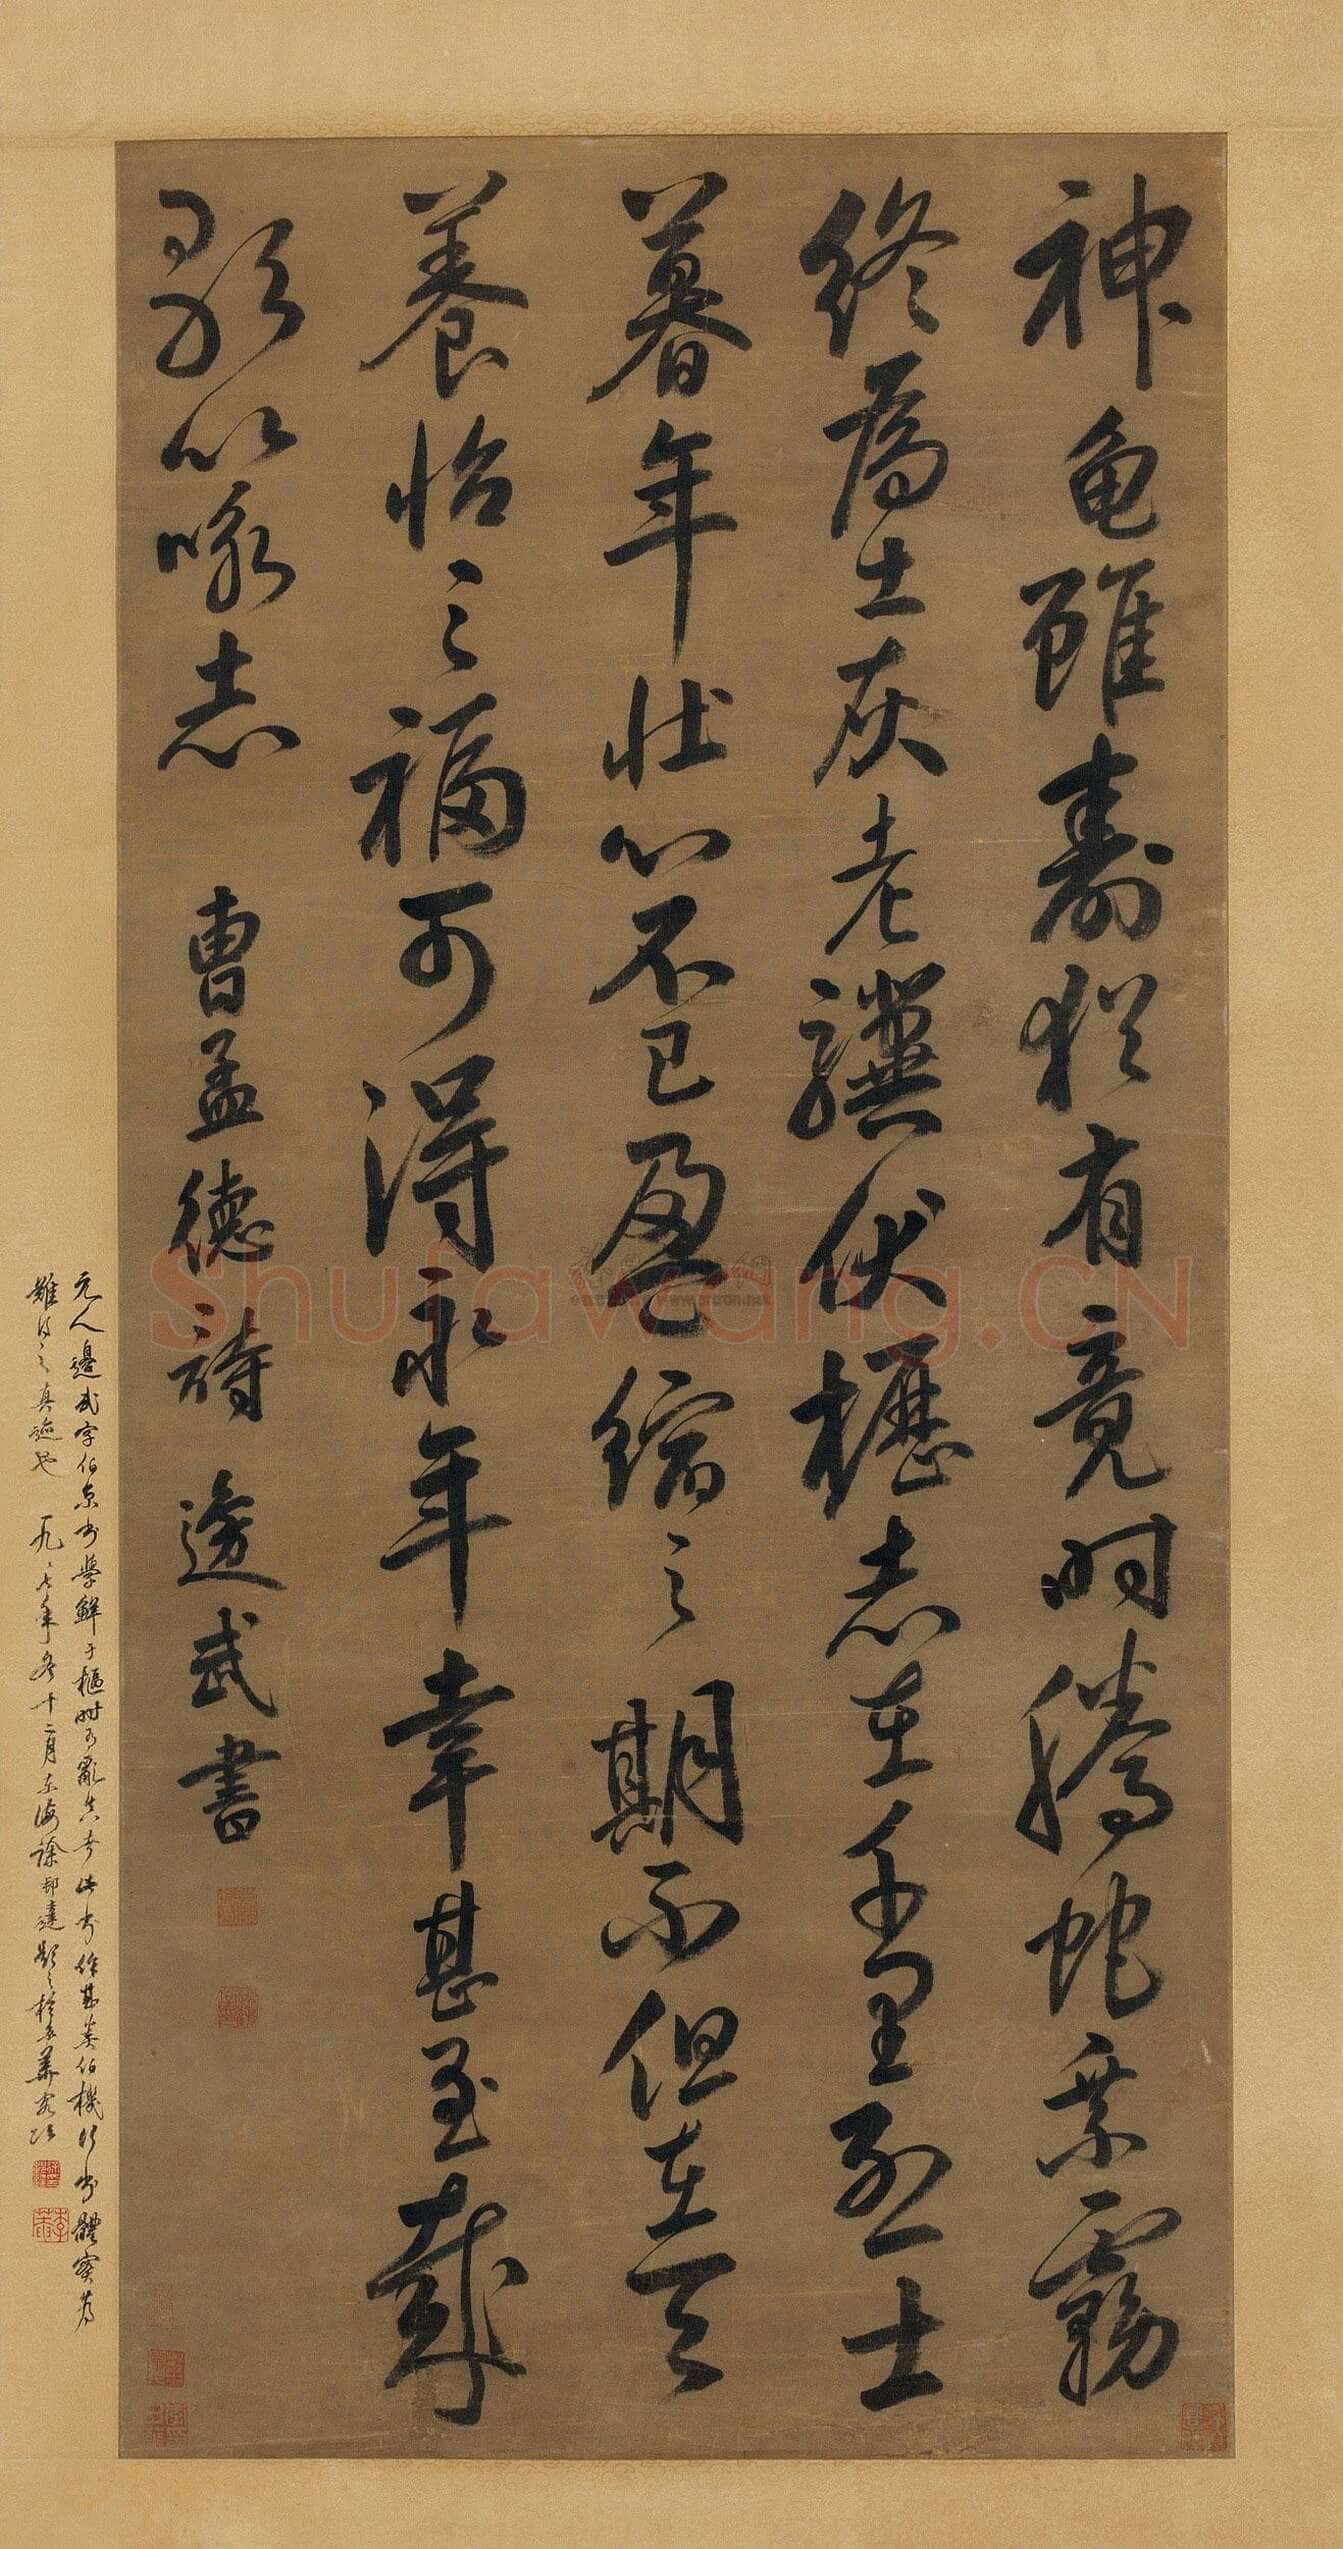 神龜雖壽猶有竟時騰蛇乘霧
終為土灰老驥伏櫪志在千里烈士
暮年壯心不已盈縮之期不但在天
養怡之福可得永年幸甚至哉
歌以詠志 曹孟德詩 邊武書
元人邊武字伯京書學鮮于樞時有亂真者此書作甚類伯機行書體實為
難得之真迹也 一九八七年冬十二月東海徐邦達題
Shufawang.CN